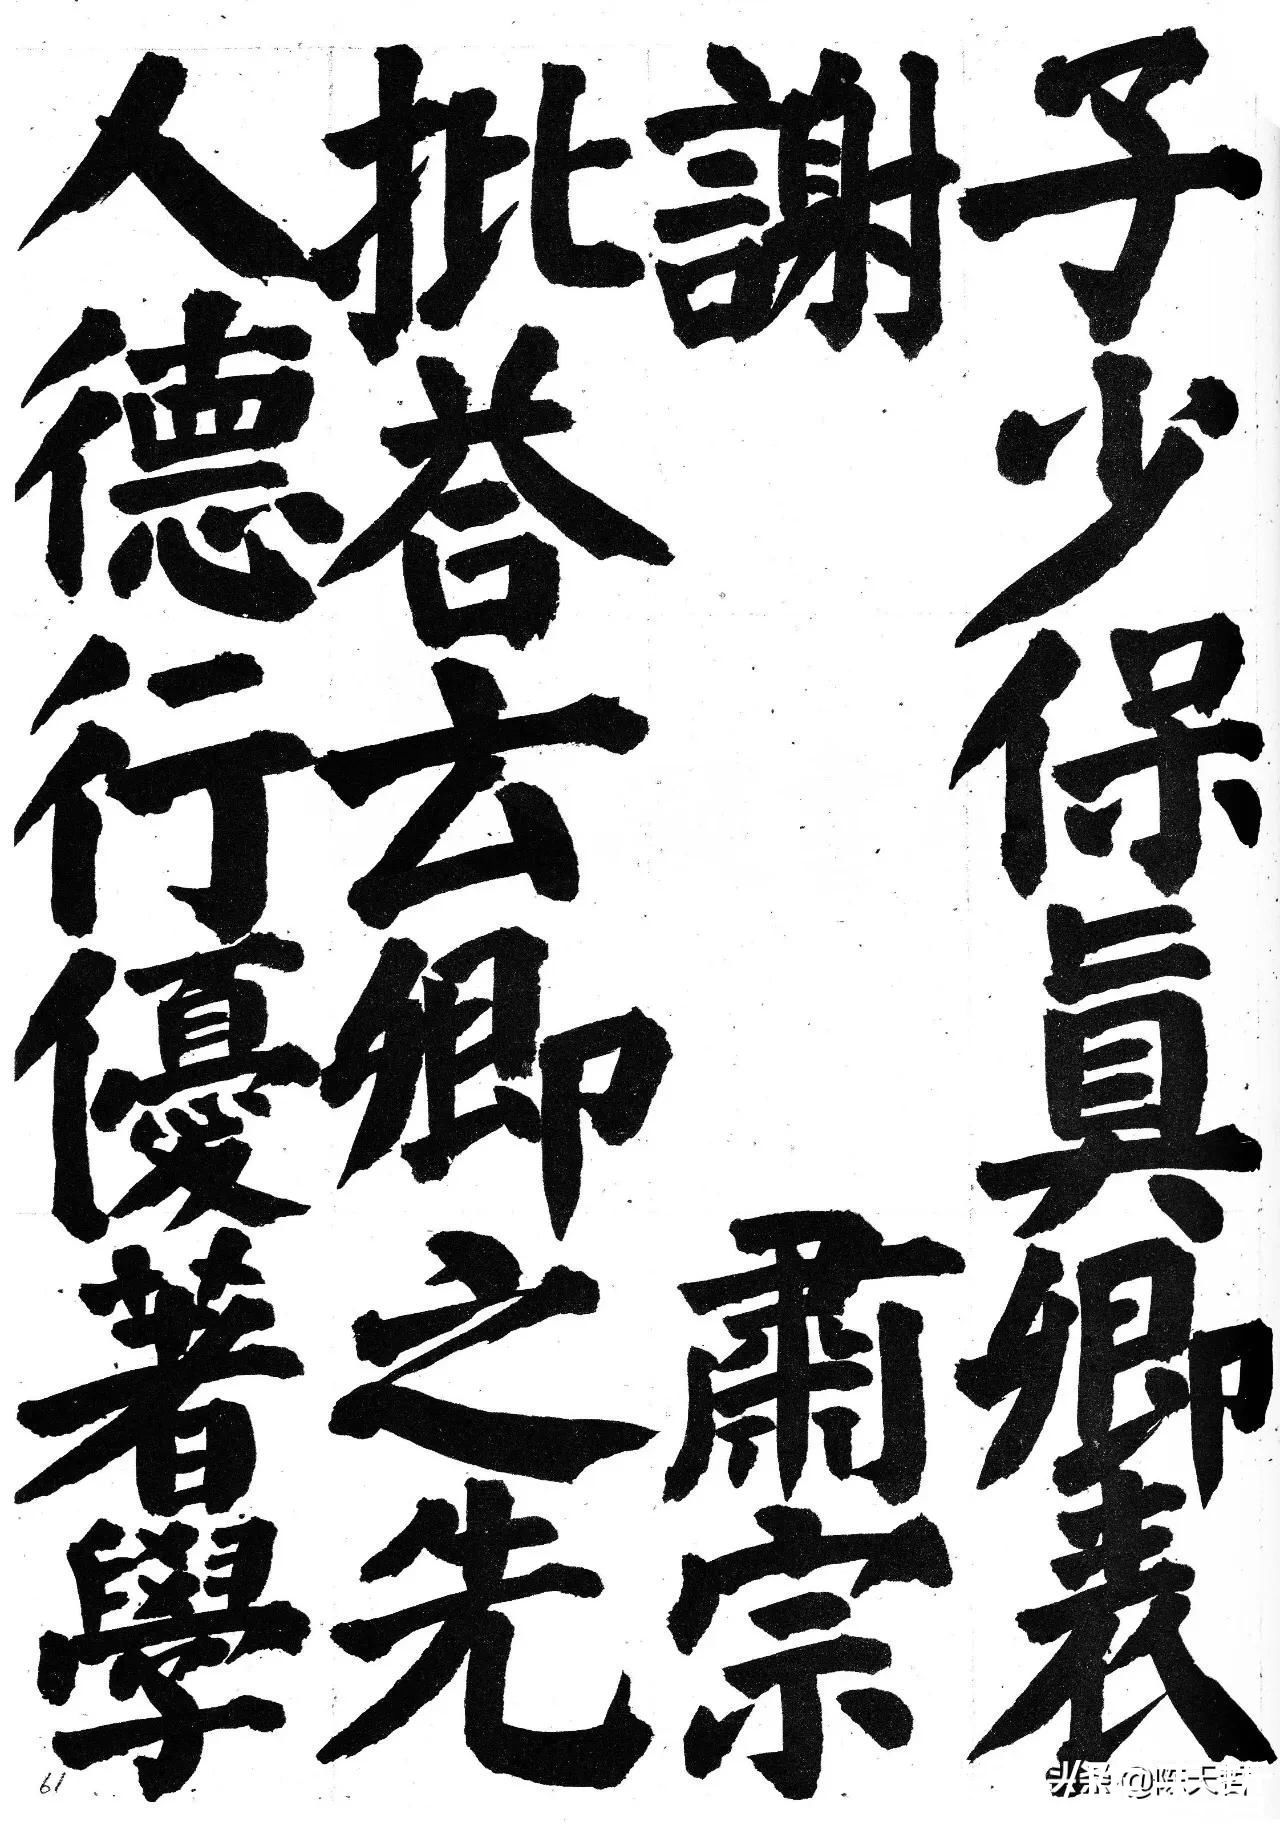 子少保真卿表
謝 肅宗
批荅云卿之先
人德行優著學
61
头条 @陈天哲